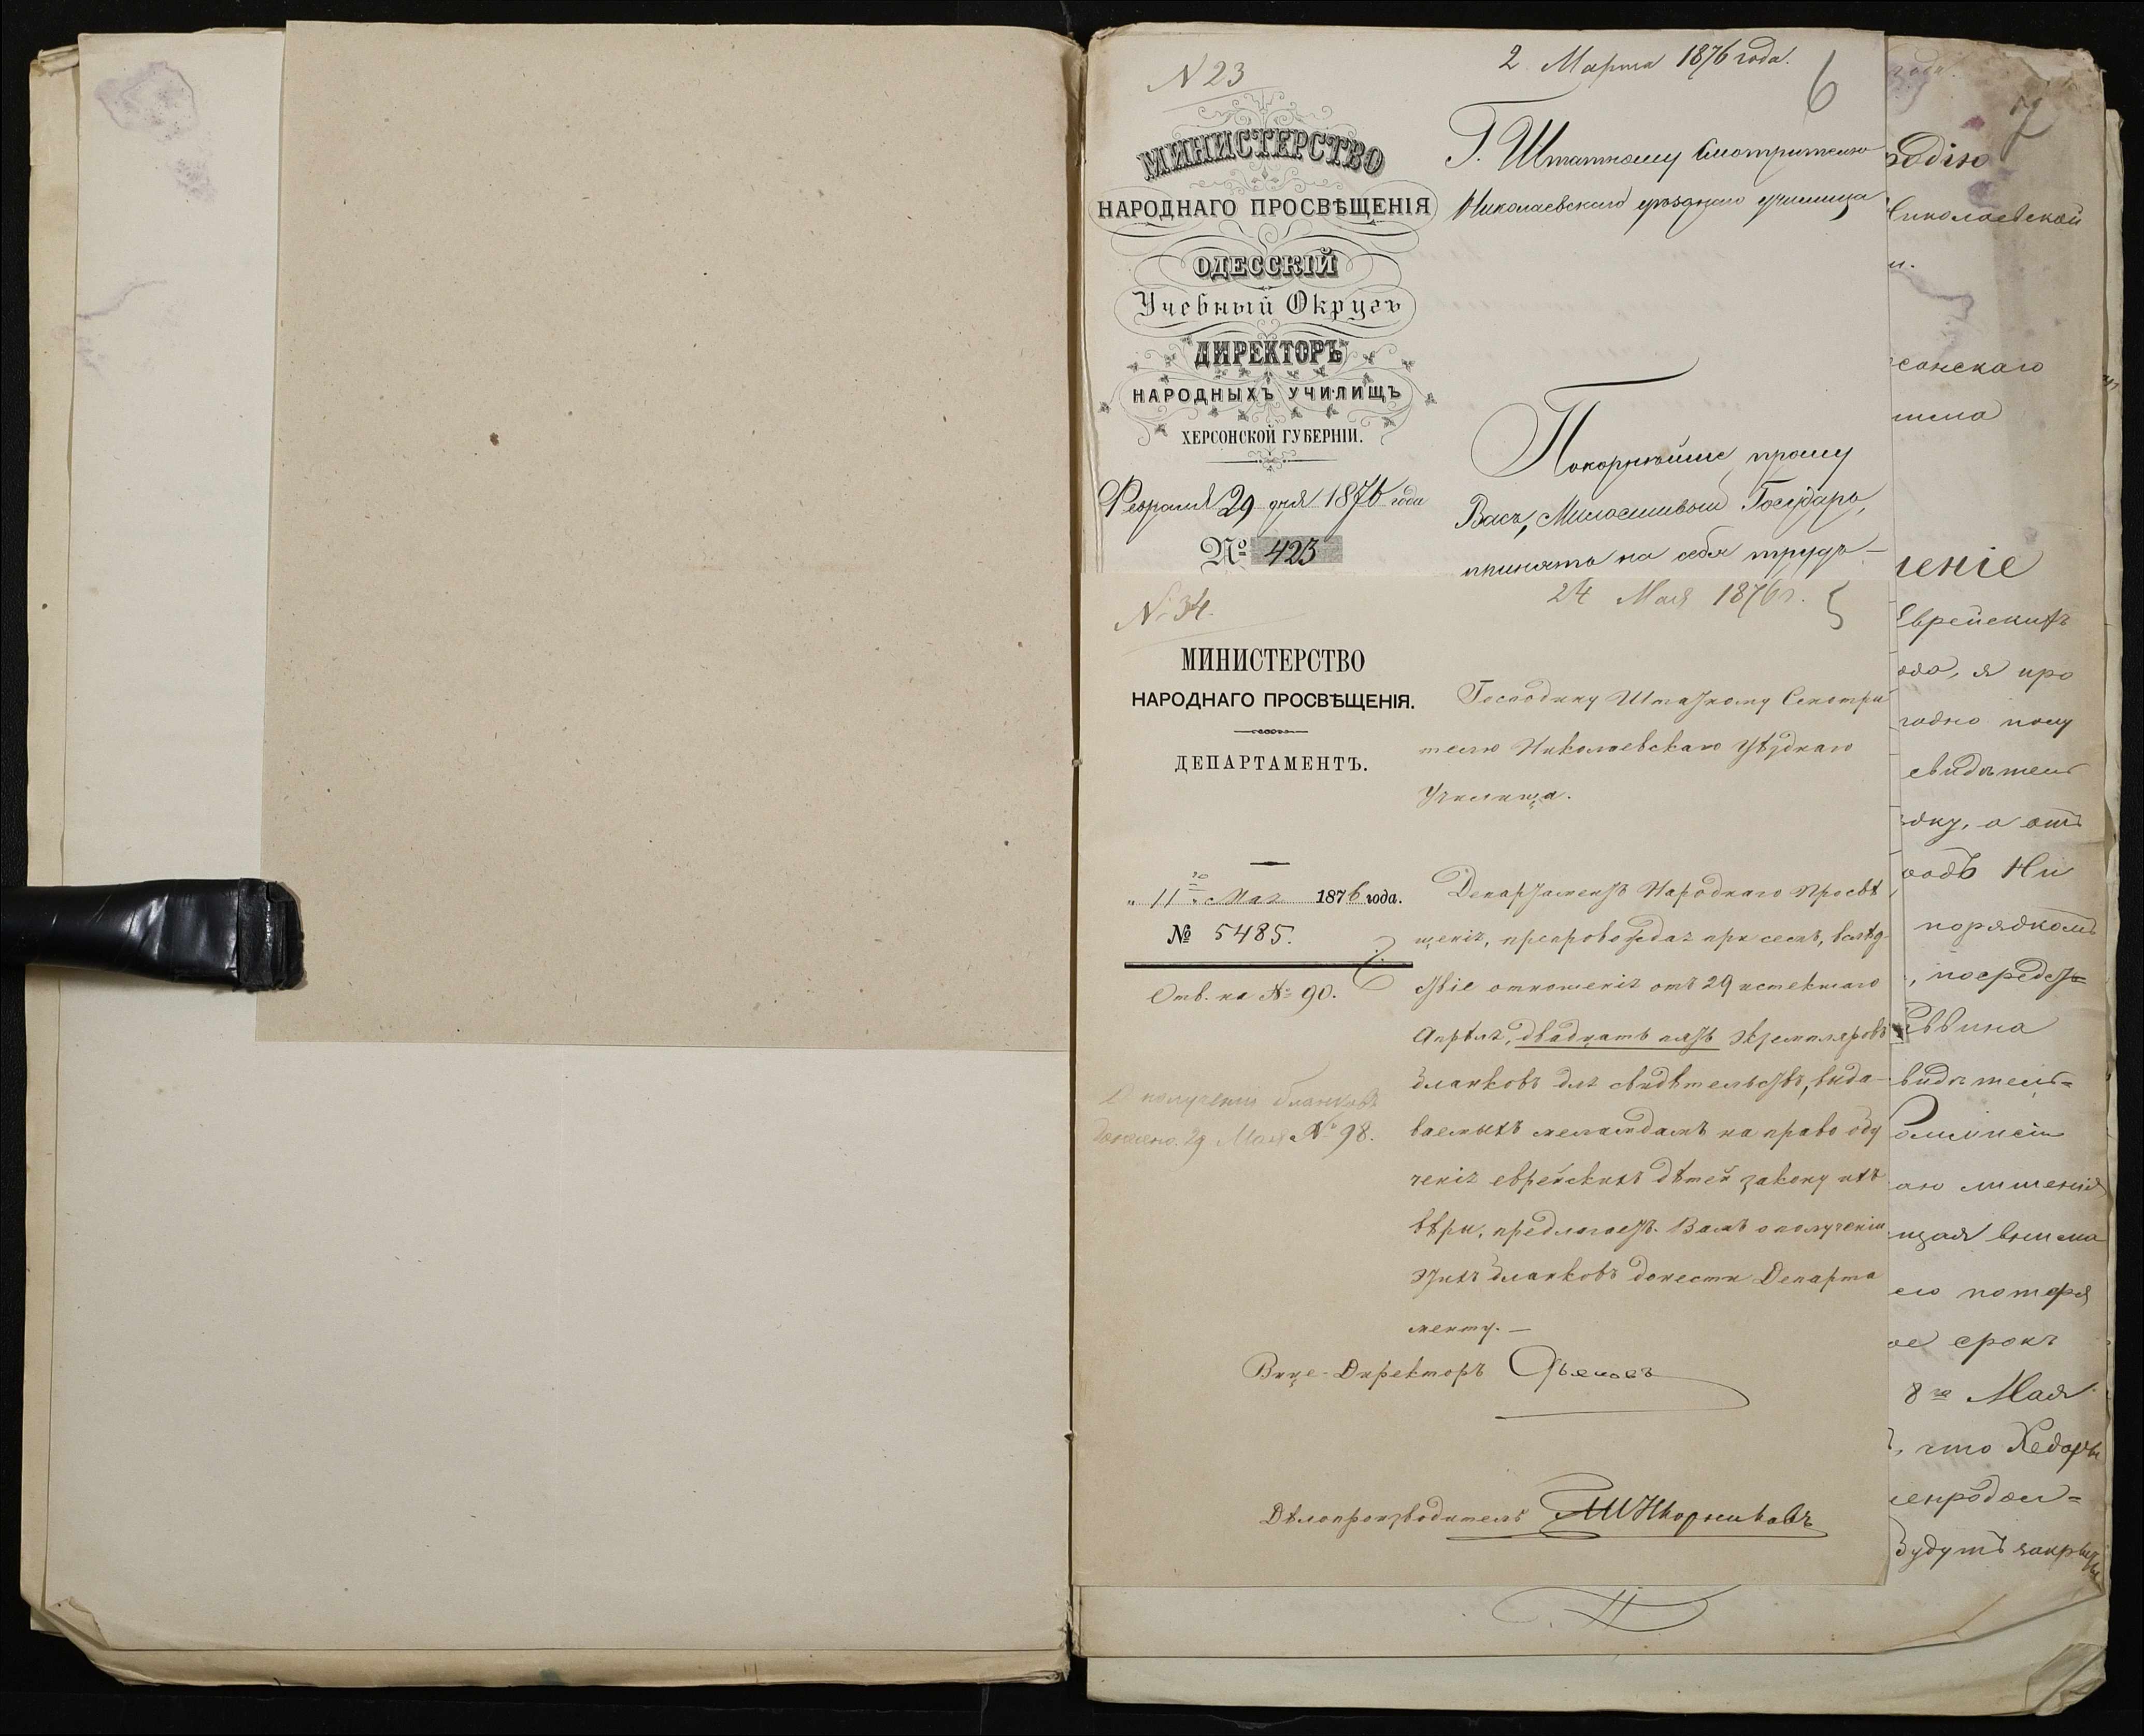 N 23
2 Марта 1876 года.
6
МИНИСТЕРСТВО
НАРОДНАГО ПРОСВѢЩЕНІЯ
ОДЕССКІЙ
Учебный Округъ
ДИРЕКТОРЪ
НАРОДНЫХЪ УЧИЛИЩЪ
ХЕРСОНСКОЙ ГУБЕРНІИ.
Февраля 29 дня 1876 года
№ 423
Г. Штатному Смотрителю
Николаевскаго уѣзднаго училища
Покорнѣйше прошу
Васъ, Милостивый Государь,
принять на себя трудъ
N. 34.
24 Мая 1876 г.
5
МИНИСТЕРСТВО
НАРОДНАГО ПРОСВѢЩЕНІЯ.
ДЕПАРТАМЕНТЪ.
„ 11го „ Мая 1876 года.
№ 5485.
Отв. на № 90.
О полученіи бланковъ
донесено 29 Мая № 98.
Господину Штатному Смотри
телю Николаевскаго Уѣзднаго
Училища.
Департаментъ Народнаго Просвѣ
щенія, препровождая при семъ, вслѣд
ствіе отношенія отъ 29 истекшаго
Апрѣля, двадцать пять экземпляровъ
бланковъ для свидѣтельствъ, выда-
ваемыхъ меламдамъ на право обу
ченія еврейскихъ дѣтей закону ихъ
вѣры, предлагаетъ Вамъ о полученіи
этихъ бланковъ донести Департа
менту. —
Вице-Директоръ
Дѣлопроизводитель
7
года.
одію
Николаевской
и.
сонскаго
теля
ченіе
Еврейскихъ
ода, я про
годно пору
свидѣтель
ону, а отъ
родъ Ни
порядкомъ
, посредст=
Раввина
видѣтель=
аго лишенія
щая вниман
его потеря
ое срокъ
8го Мая
, что Хедары
непродол=
Будутъ закрыты